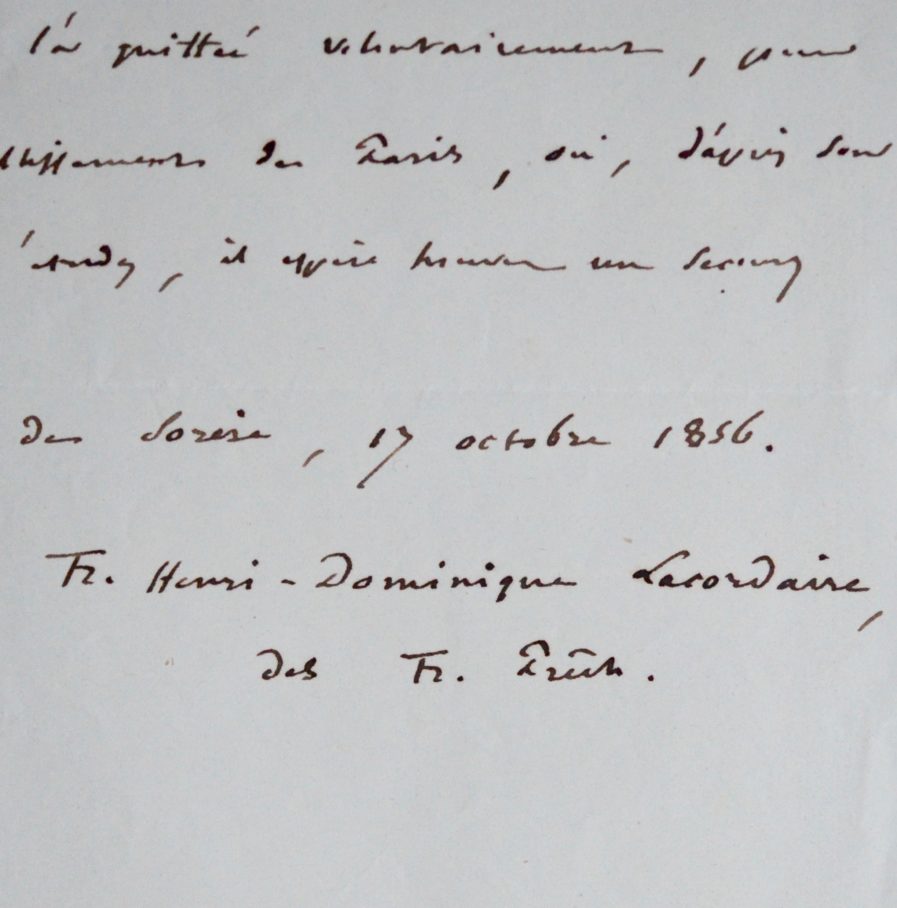 l'a quittée volontairement, pour
de Paris, où, d'après son
il espère trouver un secours
de Sorèze, 17 octobre 1856.
Fr. Henri-Dominique Lacordaire,
des Fr. Prêch.